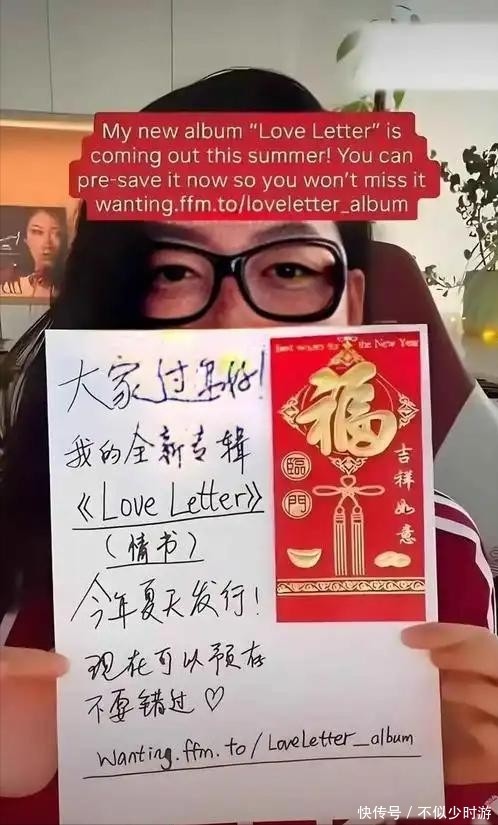 My new album "Love Letter" is
coming out this summer! You can
pre-save it now so you won't miss it
wanting.ffm.to/loveletter_album
大家过年好！
我的全新专辑
《Love Letter》
（情书）
今年夏天发行！
现在可以预存
不要错过♡
wanting.ffm.to/LoveLetter_album
Best wishes for the New Year
福
臨
門
吉祥如意
快传号 / 不似少时游